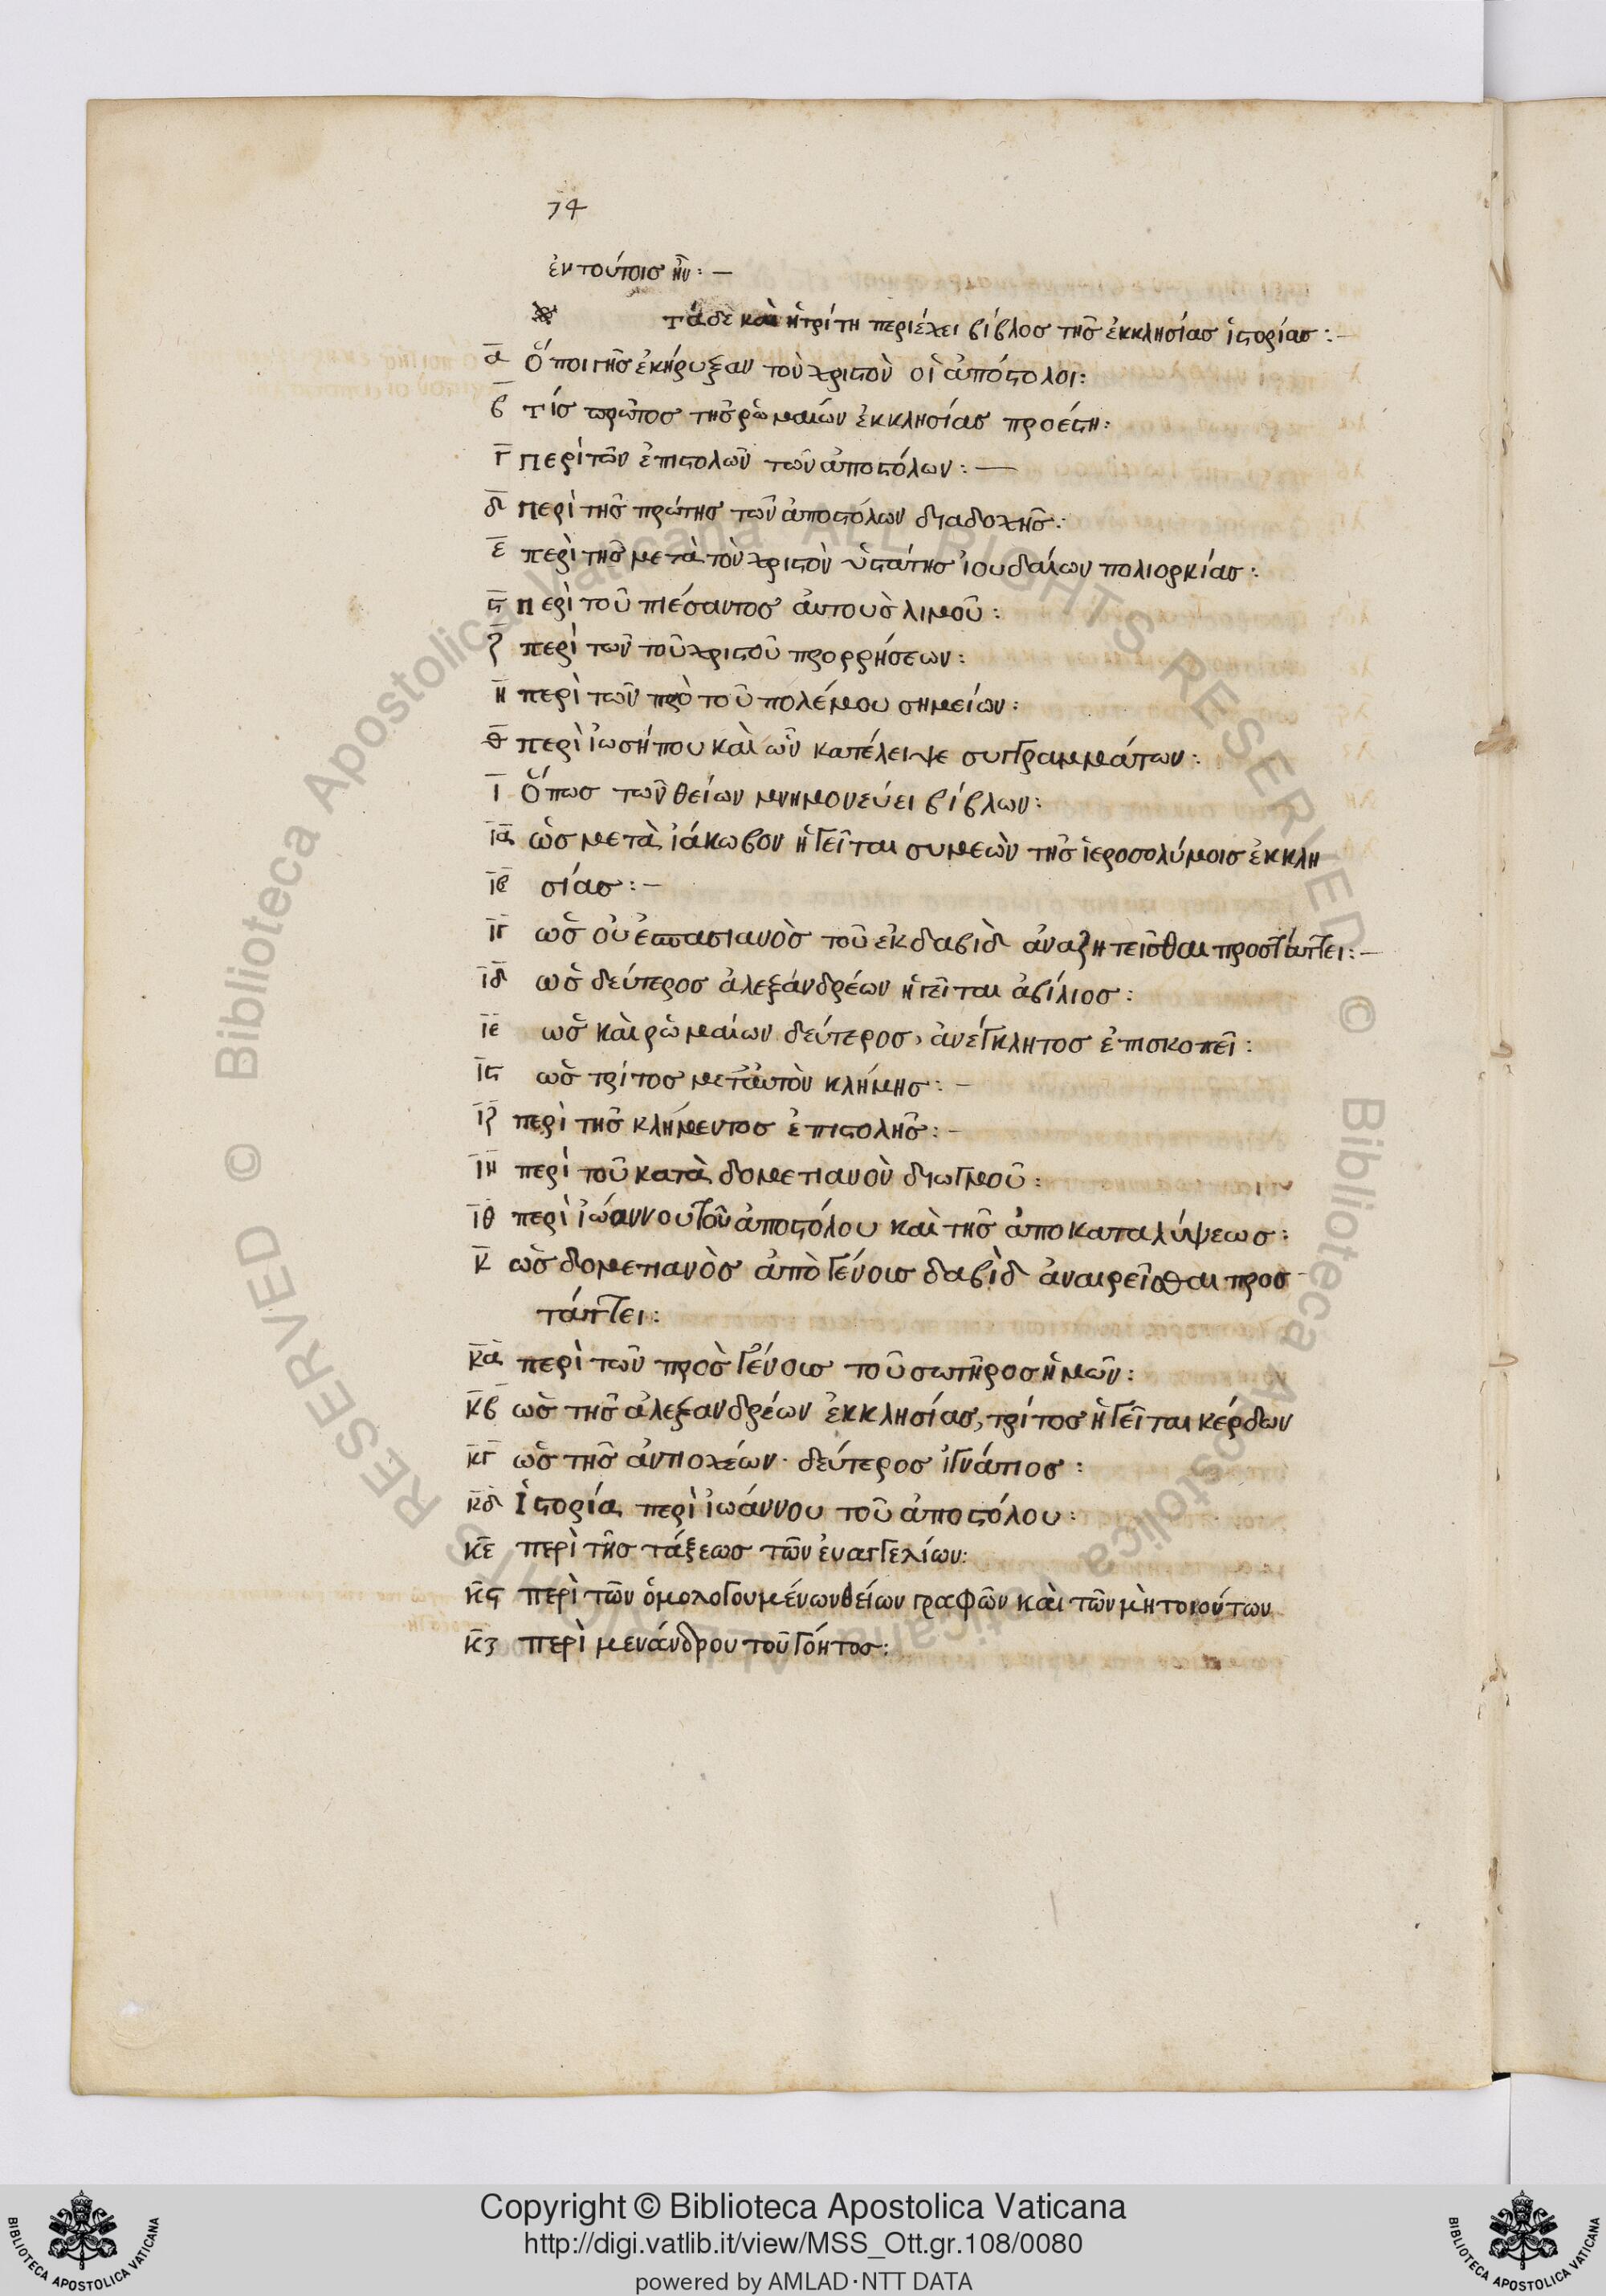 74
ἐν τούτοις ἦν: —
τάδε καὶ ἡ τρίτη περιέχει βίβλος τῆς ἐκκλησίας ἱστορίας: —
α Ὅποι γῆς ἐκήρυξαν τὸν χριστὸν οἱ ἀπόστολοι:
β τίς πρῶτος τῆς ῥωμαίων ἐκκλησίας προέστη:
γ περὶ τῶν ἐπιστολῶν τῶν ἀποστόλων: —
δ περὶ τῆς πρώτης τῶν ἀποστόλων διαδοχῆς:
ε περὶ τῆς μετὰ τὸν χριστὸν ὑστάτης ἰουδαίων πολιορκίας:
ϛ περὶ τοῦ πιέσαντος αὐτοὺς λιμοῦ:
ζ περὶ τῶν τοῦ χριστοῦ προρρήσεων:
η περὶ τῶν πρὸ τοῦ πολέμου σημείων:
θ περὶ ἰωσήπου καὶ ὧν κατέλειψε συγγραμμάτων:
ι Ὅπως τῶν θείων μνημονεύει βίβλων:
ια ὡς μετὰ ἰάκωβον ἡγεῖται συμεὼν τῆς ἱεροσολύμοις ἐκκλη
ιβ σίας: —
ιγ ὡς οὐεσπασιανὸς τοῦ ἐκ δαβὶδ ἀναζητεῖσθαι προστάττει: —
ιδ ὡς δεύτερος ἀλεξάνδρέων ἡγεῖται ἀβίλιος:
ιε ὡς καὶ ῥωμαίων δεύτερος, ἀνέγκλητος ἐπισκοπεῖ:
ιϛ ὡς τρίτος μετ' αὐτὸν κλήμης: —
ιζ περὶ τῆς κλήμεντος ἐπιστολῆς: —
ιη περὶ τοῦ κατὰ δομετιανὸν διωγμοῦ:
ιθ περὶ ἰωάννου τοῦ ἀποστόλου καὶ τῆς ἀποκαταλύψεως:
κ ὡς δομετιανὸς ἀπὸ γένους δαβὶδ ἀναιρεῖσθαι προσ
τάττει:
κα περὶ τῶν πρὸς γένους τοῦ σωτῆρος ἡμῶν:
κβ ὡς τῆς ἀλεξανδρέων ἐκκλησίας, τρίτος ἡγεῖται κέρδων
κγ ὡς τῆς ἀντιοχέων· δεύτερος ἰγνάτιος:
κδ Ἱστορία περὶ ἰωάννου τοῦ ἀποστόλου:
κε περὶ τῆς τάξεως τῶν ἐυαγγελίων:
κϛ περὶ τῶν ὁμολογουμένων θείων γραφῶν καὶ τῶν μὴ τοιούτων
κζ περὶ μενάνδρου τοῦ γόητος:
© Biblioteca Apostolica Vaticana ALL RIGHTS RESERVED
Copyright © Biblioteca Apostolica Vaticana
http://digi.vatlib.it/view/MSS_Ott.gr.108/0080
powered by AMLAD·NTT DATA
BIBLIOTECA APOSTOLICA VATICANA
BIBLIOTECA APOSTOLICA VATICANA